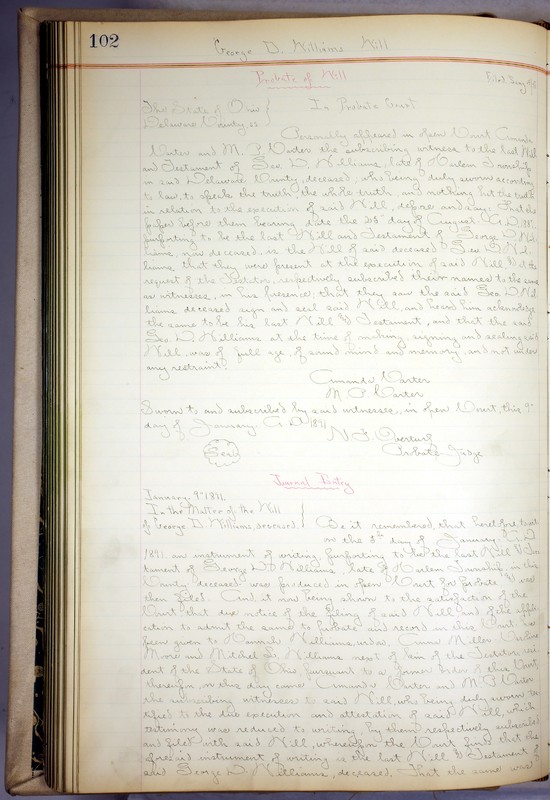 102
George D. Williams Will
Probate of Will
Filed Jany
The State of Ohio
In Probate Court
Delaware County, ss.
Personally appeared in open Court Amanda
Carter and M. P. Carter the subscribing witness to the last Will
and Testament of Geo. D. Williams, late of Harlem Township
in said Delaware County, deceased, who being duly sworn according
to law, to speak the truth, the whole truth, and nothing but the truth
in relation to the execution of said Will, depose and say: That the
paper before them bearing date the day of August A.D.
purporting to be the last Will and Testament of George D. Wil-
liams, now deceased, is the Will of said deceased Geo. D. Wil-
liams, that they were present at the execution of said Will & at the
request of the Testator, respectively subscribed their names to the same
as witnesses, in his presence; that they saw the said Geo. D. Wil-
liams deceased sign and seal said Will, and heard him acknowledge
the same to be his last Will & Testament, and that the said
Geo. D. Williams at the time of making, signing and sealing said
Will, was of full age, of sound mind and memory, and not under
any restraint.
Amanda Carter
M. P. Carter
Sworn to and subscribed by said witnesses, in open Court, this 9"
day of January A.D. 1891
N. F. Overturf
Seal
Probate Judge
Journal Entry
January 9" 1891.
In the Matter of the Will
of George D. Williams, deceased
Be it remembered, that heretofore, to wit
on the day of January A.D.
1891 an instrument of writing, purporting to be the last Will & Tes-
tament of George D. Williams, late of Harlem Township, in this
County deceased was produced in open Court for probate & was
then filed. And it now being shown to the satisfaction of the
Court that due notice of the filing of said Will and of the appli-
cation to admit the same to probate and record in this Court has
been given to Hannah Williams, widow, Emma Miller
Moore and Mitchel Williams next of kin of the Testator, resi-
dent of the State of Ohio, pursuant to a former order of this Court,
therefor, on this day came Amanda Carter and M. P. Carter
the subscribing witnesses to said Will, who being duly sworn tes-
tified to the due execution and attestation of said Will, which
testimony was reduced to writing, by them respectively subscribed
and filed with said Will, wherefore the Court find that the
aforesaid instrument of writing is the last Will & Testament of
said George D. Williams, deceased. That the same was